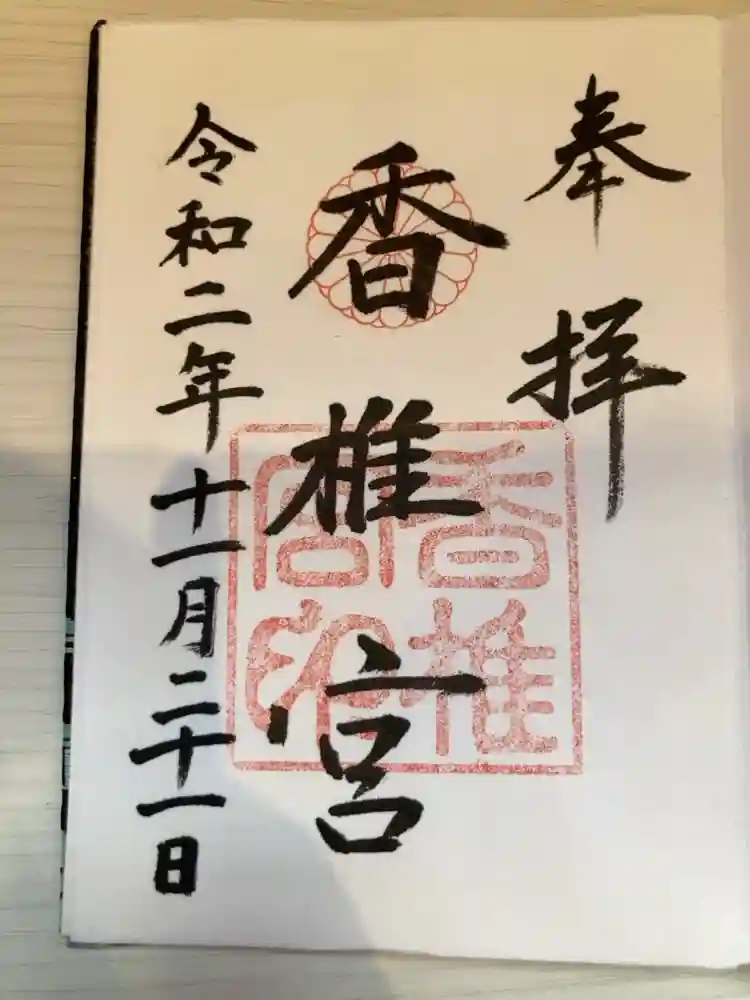 奉拝
香椎宮
香椎宮印
令和二年十一月二十一日